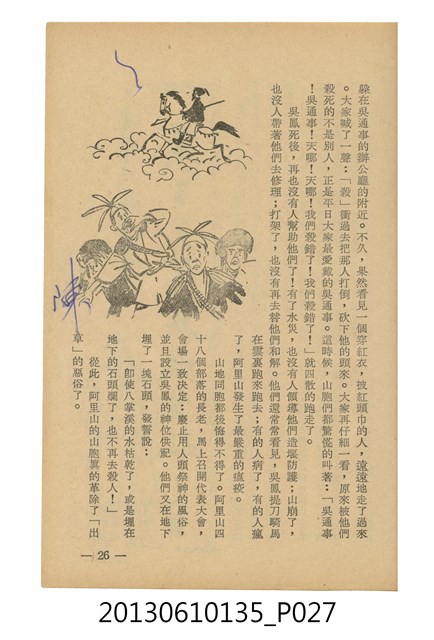 躲在吳通事的辦公廳的附近。不久，果然看見一個穿紅衣，披紅頭巾的人，遠遠地走了過來
。大家喊了一聲：「殺」衝過去把那人打倒，砍下他的頭來。大家再仔細一看，原來被他們
殺死的不是別人，正是平日大家最愛戴的吳通事。這時候，山胞們都驚慌的叫著：「吳通事
！吳通事！天哪！天哪！我們殺錯了！我們殺錯了！」就四散的跑走了。
吳鳳死後，再也沒有人幫助他們了！有了水災，也沒有人領導他們造堤防護；山崩了，
也沒人帶著他們去修理；打架了，也沒有再去替他們和解。他們還常常看見，吳鳳提刀騎馬
在雲裏跑來跑去；有的人病了，有的人瘋
了，阿里山發生了最嚴重的瘟疫。
山地同胞都後悔得不得了。阿里山四
十八個部落的長老，馬上召開代表大會，
會場一致決定：廢止用人頭祭神的風俗，
並且設立吳鳳的神位供祀。他們又在地下
埋了一塊石頭，發誓說：
「卽使八掌溪的水枯乾了，或是埋在
地下的石頭爛了，也不再去殺人！」
從此，阿里山的山胞眞的革除了「出
草」的惡俗了。
陳
— 26 —
20130610135_P027